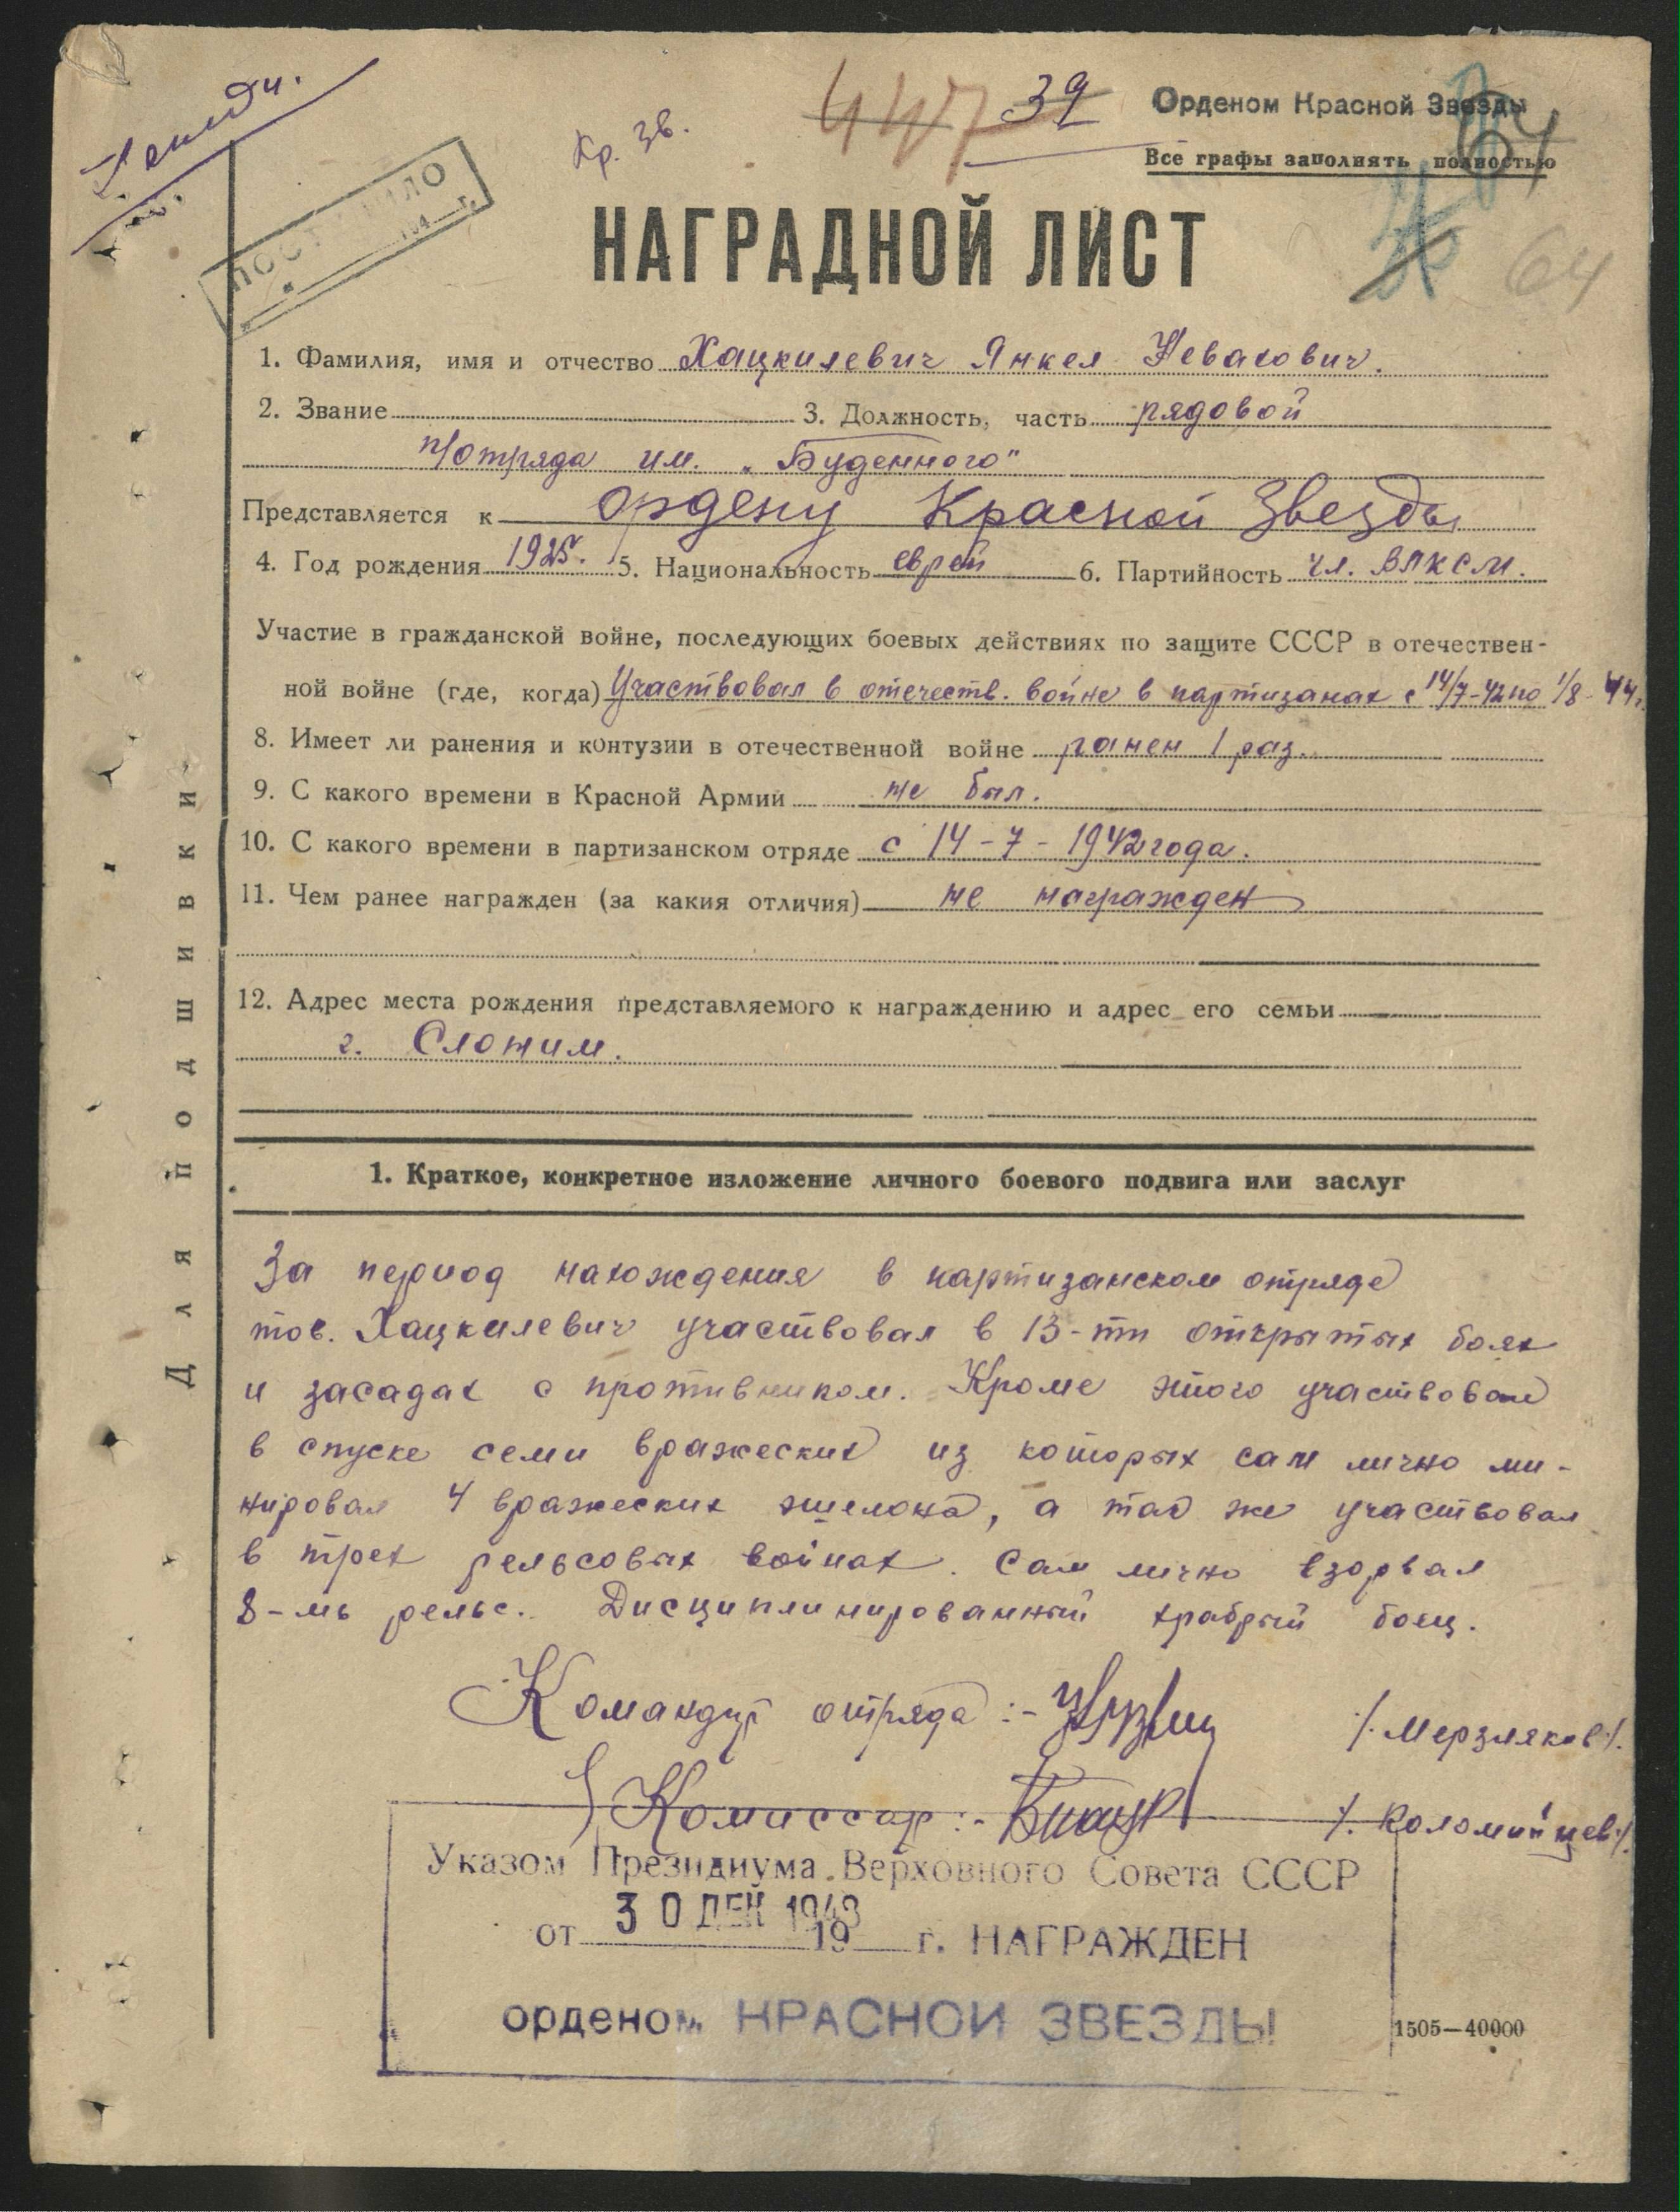 Кр. Зв.
447
39
Орденом Красной Звезды
64
Все графы заполнять полностью
64
НАГРАДНОЙ ЛИСТ
1. Фамилия, имя и отчество Хацкилевич Янкел
2. Звание 3. Должность, часть рядовой
п/отряда им. „Буденного"
Представляется к ордену Красной Звезды
4. Год рождения 1925. 5. Национальность еврей 6. Партийность чл. ВЛКСМ.
Участие в гражданской войне, последующих боевых действиях по защите СССР в отечествен-
ной войне (где, когда) Участвовал в отечеств. войне в партизанах с 14/7-42 по 1/8-44г.
8. Имеет ли ранения и контузии в отечественной войне ранен 1 раз.
9. С какого времени в Красной Армии не был.
10. С какого времени в партизанском отряде с 14-7-1942 года.
11. Чем ранее награжден (за какия отличия) не награжден
12. Адрес места рождения представляемого к награждению и адрес его семьи
г. Слоним.
Для подшивки
1. Краткое, конкретное изложение личного боевого подвига или заслуг
За период нахождения в партизанском отряде
тов. Хацкилевич участвовал в 13-ти открытых боях
и засадах с противником. Кроме этого участвовал
в спуске семи вражеских из которых сам лично ми-
нировал 4 вражеских эшелона, а так же участвовал
в трех рельсовых войнах. Сам лично взорвал
8-мь рельс. Дисциплинированный храбрый боец.
Командир отряда:- /. Мерзляков./.
Комиссар:- /. Коломийцев./.
Указом Президиума Верховного Совета СССР
от 30 ДЕК 1948 19 г. НАГРАЖДЕН
орденом КРАСНОЙ ЗВЕЗДЫ
1505—40000